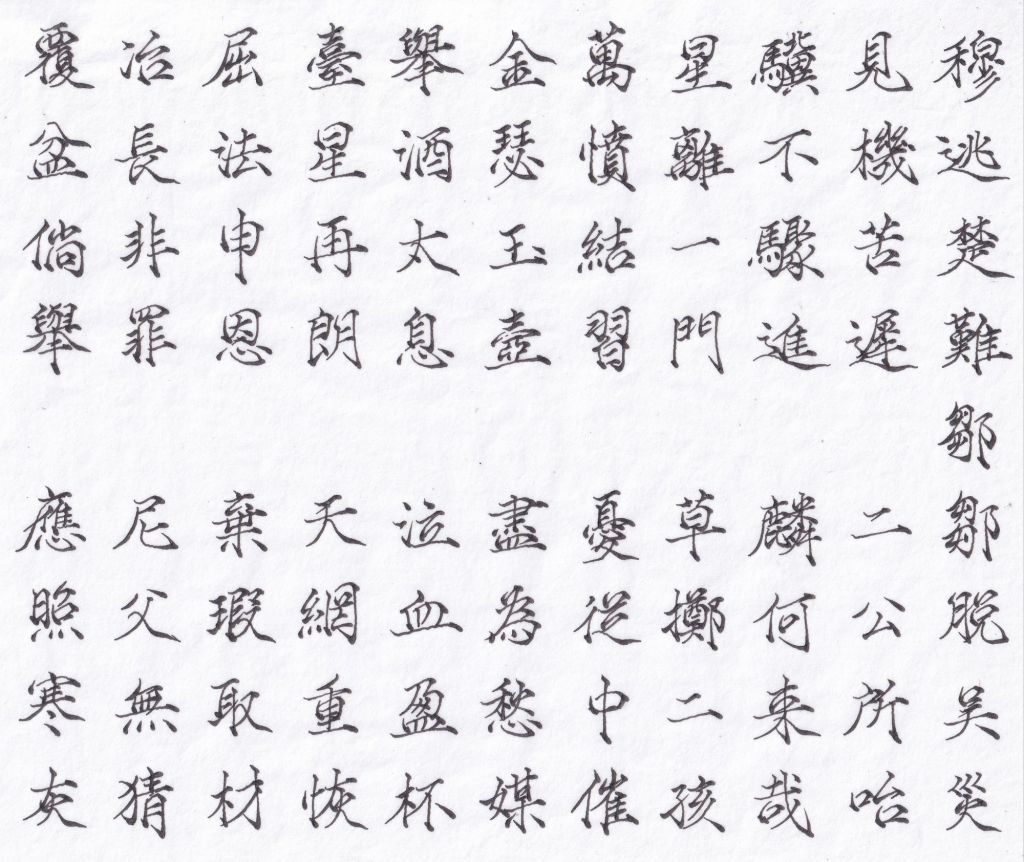 穆逃楚難鄒鄒脱吴災
見機苦遲二公所咍
驥不驟進麟何来哉
星離一門草擲二孩
萬憤結習憂從中催
金瑟玉壺盡為愁媒
舉酒太息泣血盈杯
臺星再朗天網重恢
屈法申恩棄瑕取材
冶長非罪尼父無猜
覆盆倘舉應照寒灰